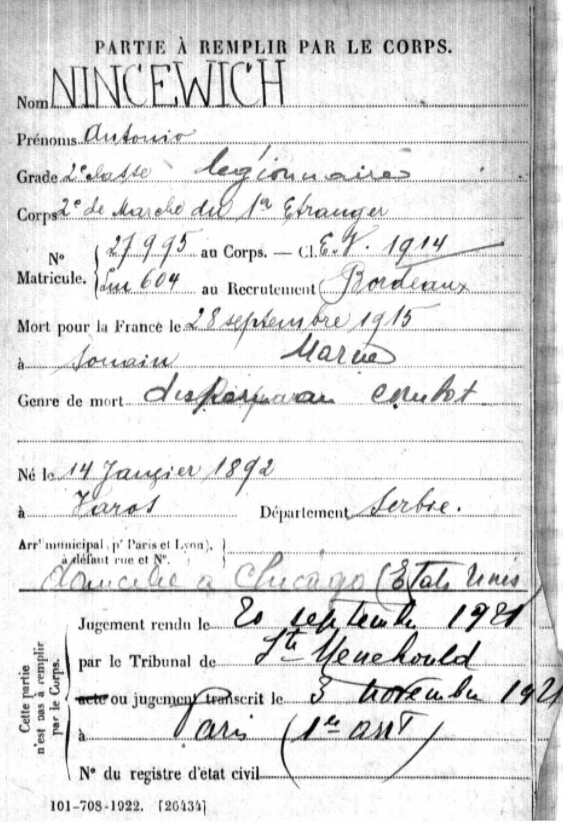 PARTIE À REMPLIR PAR LE CORPS.
Nom NINCEWICH
Prénoms Antonio
Grade 2e classe légionnaire
Corps 2e de Marche du 1er Etranger
N° Matricule. 27995 au Corps. — Cl. E.V. 1914
604 au Recrutement Bordeaux
Mort pour la France le 28 septembre 1915
à Souain Marne
Genre de mort disparu au combat
Né le 14 Janvier 1892
à Département Serbie.
Arrt municipal (pr Paris et Lyon),
à défaut rue et N°.
domicilié à Chicago (Etats Unis
Cette partie n'est pas à remplir par le Corps.
Jugement rendu le 20 septembre 1921
par le Tribunal de Ste Menehould
acte ou jugement transcrit le 3 novembre 1921
à Paris (1er arrt)
N° du registre d'état civil
101-708-1922. [26434]